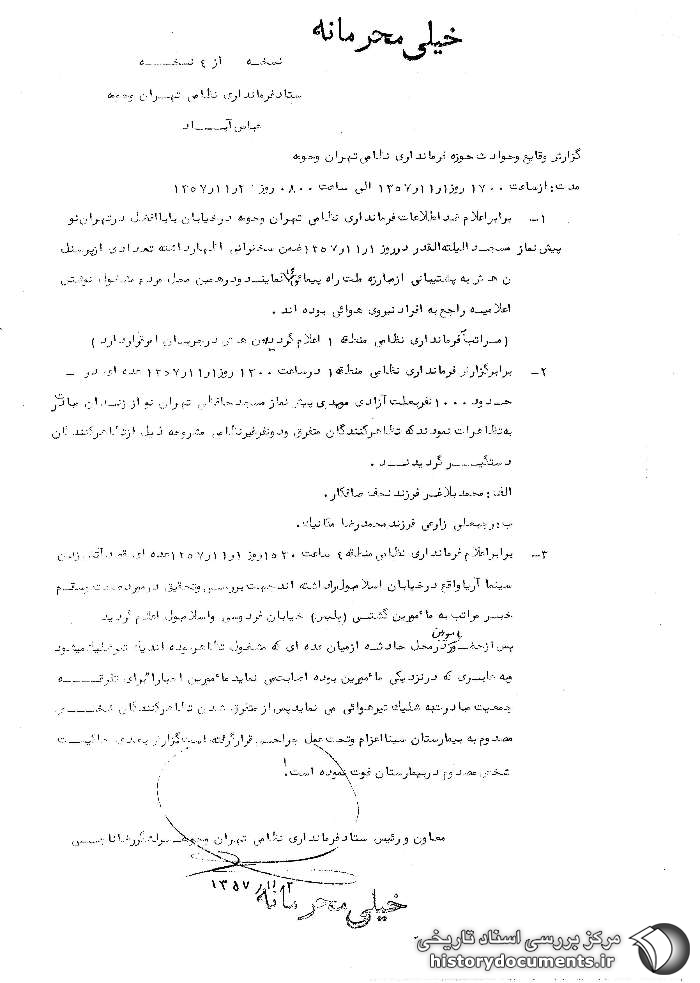 خیلی محرمانه
نسخه از ٤ نسخـــه
ستاد فرمانداری نظامی تهـران وحومه
عباس آبـــاد
گزارش وقایع وحوادث حوزه فرمانداری نظامی تهران وحومه
مدت: ازساعت ١٧٠٠ روز ١ر١١ر١٣٥٧ الی ساعت ٠٨٠٠ روز ٢ر١١ر١٣٥٧
١- برابراعلام ضداطلاعات فرمانداری نظامی تهران وحومه درخیابان باباافضل درتهران نو
پیش نماز مسجد لیلته القدر درروز ١ر١١ر١٣٥٧ ضمن سخنرانی اظهارداشته تعدادی ازپرسنل
ن هـ ش به پشتیبانی ازمبارزه ملت راه پیمائی نمایند ودرهمین محل مردم مشغول نوشتن
اعلامیه راجع به افراد نیروی هوائی بوده اند .
(مراتب فرمانداری نظامی منطقه ١ اعلام گردیده ن هـ ش درجریان امرقراردارد)
٢- برابرگزارش فرمانداری نظامی منطقه ١ درساعت ١٣٠٠ روز ١ر١١ر١٣٥٧ عده ای در -
حدود ١٠٠٠ نفربعلت آزادی مهدی پیش نماز مسجد تهران نو از زندان مبادرت
به تظاهرات نمودند که تظاهرکنندگان متفرق ودونفرغیرنظامی مشروحه ذیل ازتظاهرکنندگان
دستگیـــر گردیدنـــد .
الف: محمد فرزند نجف صافکار.
ب: رجبعلی زارعی فرزند محمدرضا مکانیک.
٣- برابراعلام فرمانداری نظامی منطقه ٤ ساعت ١٥٣٠ روز ١ر١١ر١٣٥٧ عده ای قصد آتش زدن
سینما آریا واقع درخیابان اسلامبول راداشته اند جهت بررسی وتحقیق درمورد صحت وسقم
خبـر مراتب به مأمورین گشتی (پلیس) خیابان فردوسی واسلامبول اعلام گردید
پس ازحضور مامورین درمحل حادثه ازمیان عده ای که مشغول تظاهربوده اند یک تیرشلیک میشود
به عابری که درنزدیکی مأمورین بوده اصابت می نماید مأمورین اجباراً برای تفرقـــه
جمعیت مبادرت به شلیک تیرهوائی می نماید پس از متفرق شدن تظاهرکنندگان شخـــص
مصدوم به بیمارستان سینا اعزام وتحت عمل جراحی قرارگرفته است گزارش بعدی حاکیست
شخص مصدوم دربیمارستان فوت نموده است.
معاون و رئیس ستاد فرمانداری نظامی تهران وحومه - سرلشگر رضا ناجی
٢ر١١ر١٣٥٧
خیلی محرمانه
مرکز بررسی اسناد تاریخی
historydocuments.ir